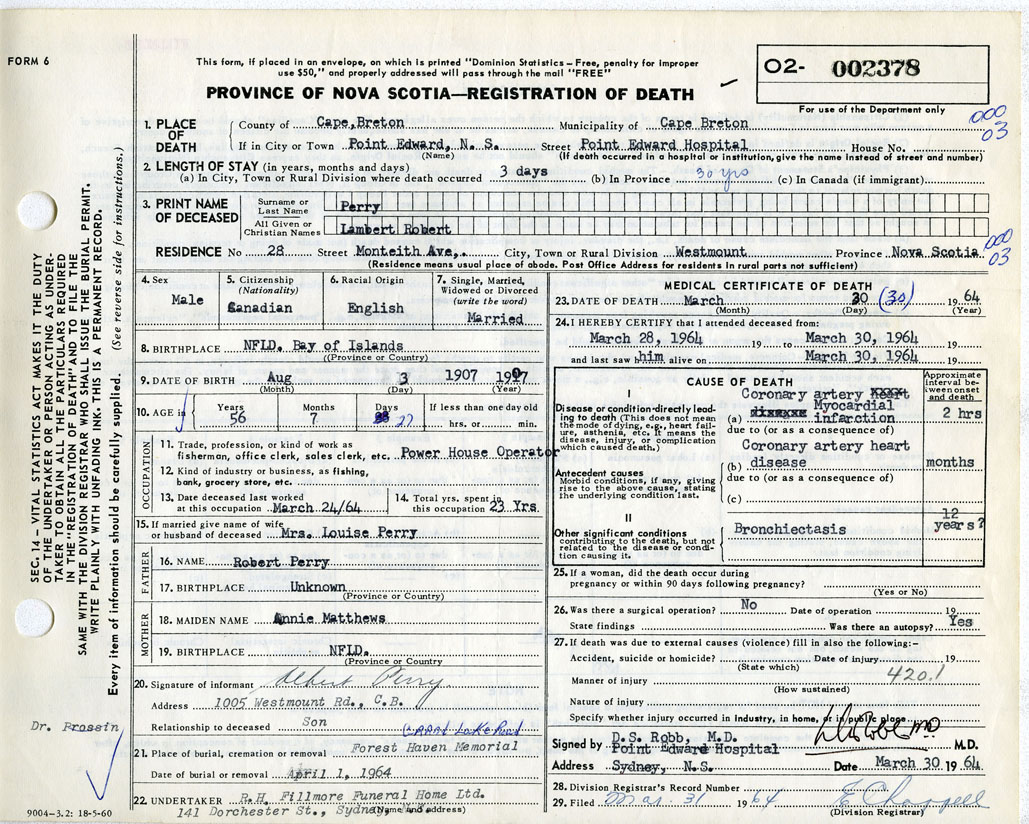 FORM 6
This form, if placed in an envelope, on which is printed "Dominion Statistics – Free, penalty for improper
use $50," and properly addressed will pass through the mail "FREE"
PROVINCE OF NOVA SCOTIA—REGISTRATION OF DEATH
O2- 002378
For use of the Department only
000
03
1. PLACE OF DEATH
County of Cape Breton Municipality of Cape Breton
If in City or Town Point Edward, N. S. Street Point Edward Hospital House No.
(Name) (If death occurred in a hospital or institution, give the name instead of street and number)
2. LENGTH OF STAY (in years, months and days)
(a) In City, Town or Rural Division where death occurred 3 days (b) In Province 30 yrs (c) In Canada (if immigrant)
3. PRINT NAME OF DECEASED
Surname or Last Name Perry
All Given or Christian Names Lambert Robert
RESIDENCE No 28 Street Monteith Ave,. City, Town or Rural Division Westmount Province Nova Scotia
000
03
(Residence means usual place of abode. Post Office Address for residents in rural parts not sufficient)
4. Sex
Male
5. Citizenship
(Nationality)
Canadian
6. Racial Origin
English
7. Single, Married,
Widowed or Divorced
(write the word)
Married
8. BIRTHPLACE NFLD. Bay of Islands
(Province or Country)
9. DATE OF BIRTH Aug 3 1907 1907
(Month) (Day) (Year)
10. AGE in
Years
56
Months
7
Days
27
If less than one day old
hrs. or min.
OCCUPATION
11. Trade, profession, or kind of work as
fisherman, office clerk, sales clerk, etc. Power House Operator
12. Kind of industry or business, as fishing,
bank, grocery store, etc.
13. Date deceased last worked
at this occupation March 24/64
14. Total yrs. spent in
this occupation 23 Yrs.
15. If married give name of wife
or husband of deceased Mrs. Louise Perry
FATHER
16. NAME Robert Perry
17. BIRTHPLACE Unknown
(Province or Country)
MOTHER
18. MAIDEN NAME Annie Matthews
19. BIRTHPLACE NFLD.
(Province or Country)
20. Signature of informant Albert Perry
Address 1005 Westmount Rd., C.B.
Relationship to deceased Son
21. Place of burial, cremation or removal Forest Haven Memorial
Date of burial or removal April 1, 1964
22. UNDERTAKER R.H. Fillmore Funeral Home Ltd.
141 Dorchester St., Sydney, (Name and address)
MEDICAL CERTIFICATE OF DEATH
23. DATE OF DEATH March 30 (30) 19 64
(Month) (Day) (Year)
24. I HEREBY CERTIFY that I attended deceased from:
March 28, 1964 19 to March 30, 1964
and last saw him alive on March 30, 1964
CAUSE OF DEATH
Approximate
interval be-
tween onset
and death
I
Disease or condition directly lead-
ing to death (This does not mean
the mode of dying, e.g., heart fail-
ure, asthenia, etc. It means the
disease, injury, or complication
which caused death.)
Coronary artery
(a) Myocardial
infarction
2 hrs
due to (or as a consequence of)
Antecedent causes
Morbid conditions, if any, giving
rise to the above cause, stating
the underlying condition last.
Coronary artery heart
(b) disease
months
due to (or as a consequence of)
(c)
II
Other significant conditions
contributing to the death, but not
related to the disease or condi-
tion causing it.
Bronchiectasis
12
years?
25. If a woman, did the death occur during
pregnancy or within 90 days following pregnancy?
(Yes or No)
26. Was there a surgical operation? No Date of operation 19
State findings Was there an autopsy? Yes
27. If death was due to external causes (violence) fill in also the following:–
Accident, suicide or homicide? Date of injury 19
(State which)
420.1
Manner of injury
(How sustained)
Nature of injury
Specify whether injury occurred in industry, in home, or in public place
Signed by D.S. Robb, M.D. M.D.
Point Edward Hospital
Address Sydney, N.S. Date March 30 19 64
28. Division Registrar's Record Number
29. Filed Mar. 31 19 64 E Chappell
(Division Registrar)
SEC. 14 – VITAL STATISTICS ACT MAKES IT THE DUTY
OF THE UNDERTAKER OR PERSON ACTING AS UNDER-
TAKER TO OBTAIN ALL THE PARTICULARS REQUIRED
IN THE "REGISTRATION OF DEATH" AND TO FILE THE
SAME WITH THE DIVISION REGISTRAR WHO SHALL ISSUE THE BURIAL PERMIT.
WRITE PLAINLY WITH UNFADING INK. THIS IS A PERMANENT RECORD.
Every item of information should be carefully supplied. (See reverse side for instructions.)
Dr. Frossin
9004-3.2: 18-5-60